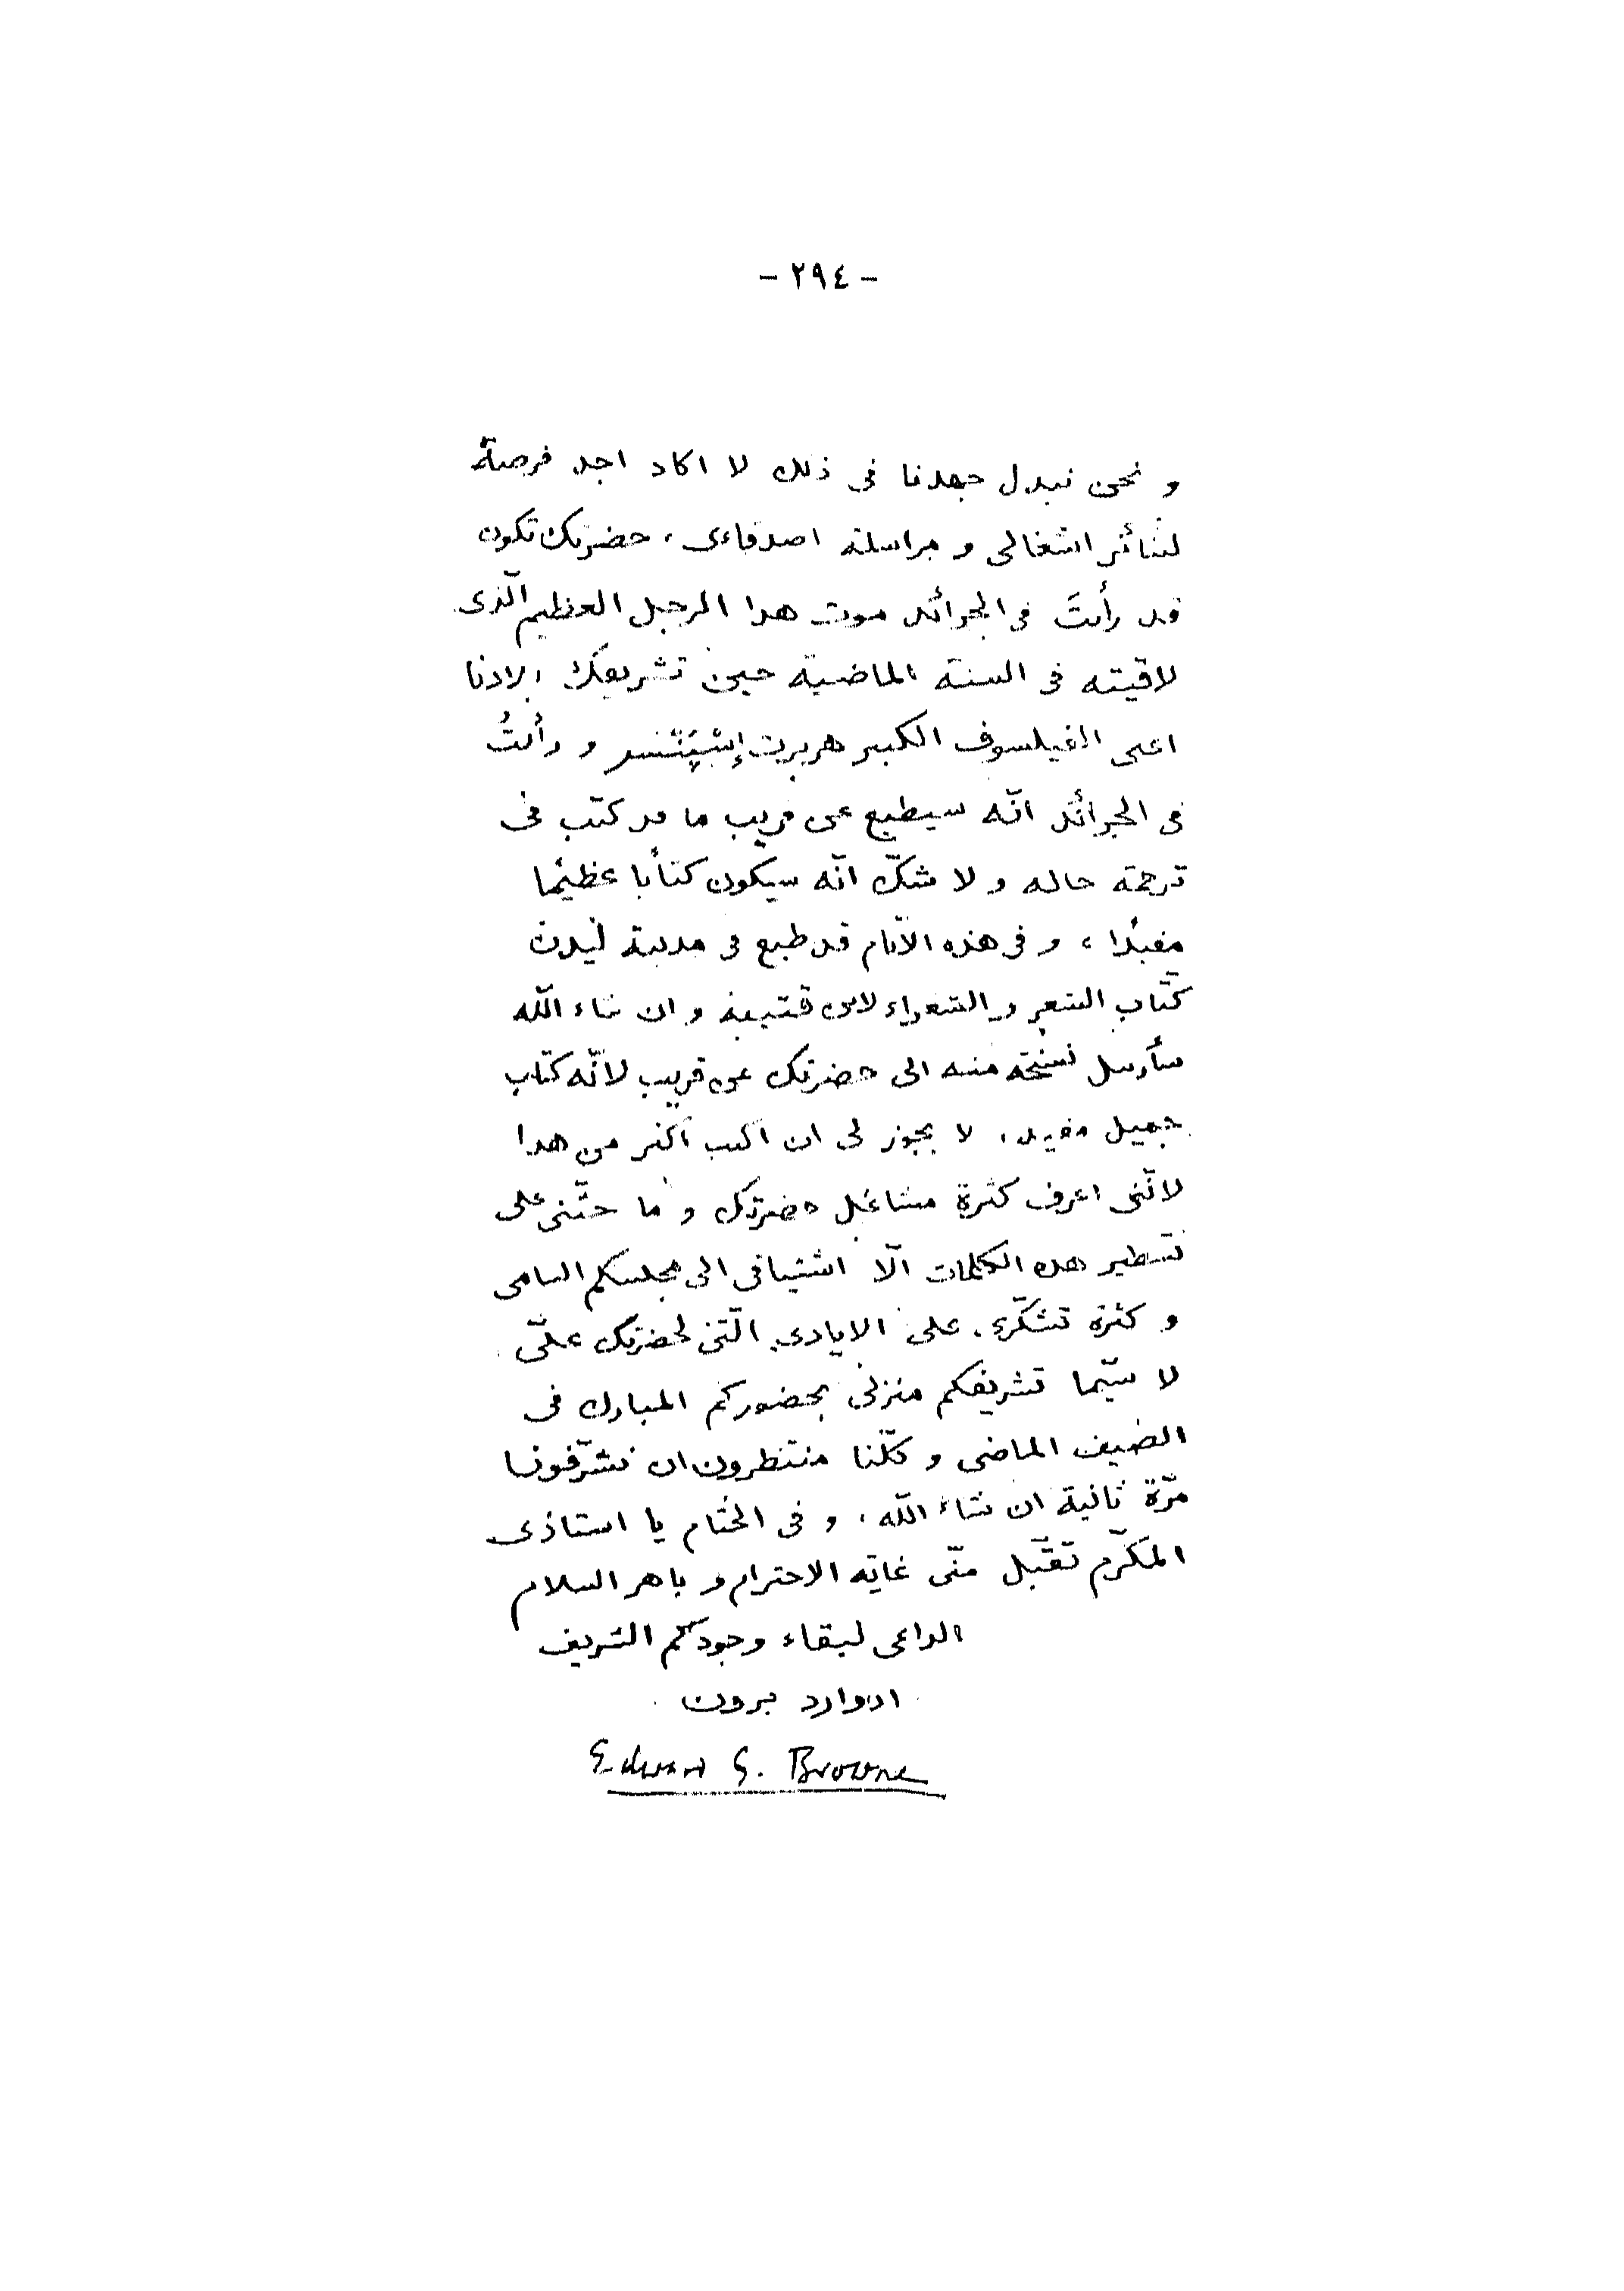 - ٢٩٤ -
و نحن نبذل جهدنا فى ذلك لا اكاد اجد فرصة
لسائر اشغالى و مراسلة اصدقاءى ، حضرتك تكون
قد رأيتَ فى الجرائد موت هذا الرجل العظيم الّذى
لاقيته فى السنة الماضية حين تشريفك بلادنا
اعنى الفيلسوف الكبير هربرت إسْپِنْسر و رأيتُ
فى الجرائد انّه سيطبع عن قريب ما قد كتب فى
ترجمة حاله و لا شكّ انّه سيكون كتابا عظيما
مفيدا ، و فى هذه الايّام قد طبع فى مدينة ليدن
كتاب الشعر و الشعراء لابن قتيبة و ان شاء اللّه
سأرسل نسخة منه الى حضرتك عن قريب لانّه كتاب
جميل مفيد ، لا يجوز لى ان اكتب اكثر من هذا
لانّنى اعرف كثرة مشاغل حضرتك و ما حثّنى على
تسطير هذه الكلمات الّا اشتياقى الى مجلسكم السامى
و كثرة تشكّرى على الايادى الّتى لحضرتك علىّ
لا سيّما تشريفكم منزلى بحضوركم المبارك فى
الصيف الماضى و كلّنا منتظرون ان تشرّفونا
مرّة ثانية ان شاء اللّه ، و فى الختام يا استاذى
المكرّم تقبّل منّى غاية الاحترام و باهر السلام
الداعى لبقاء وجودكم الشريف
ادوارد برون
Edward G. Browne